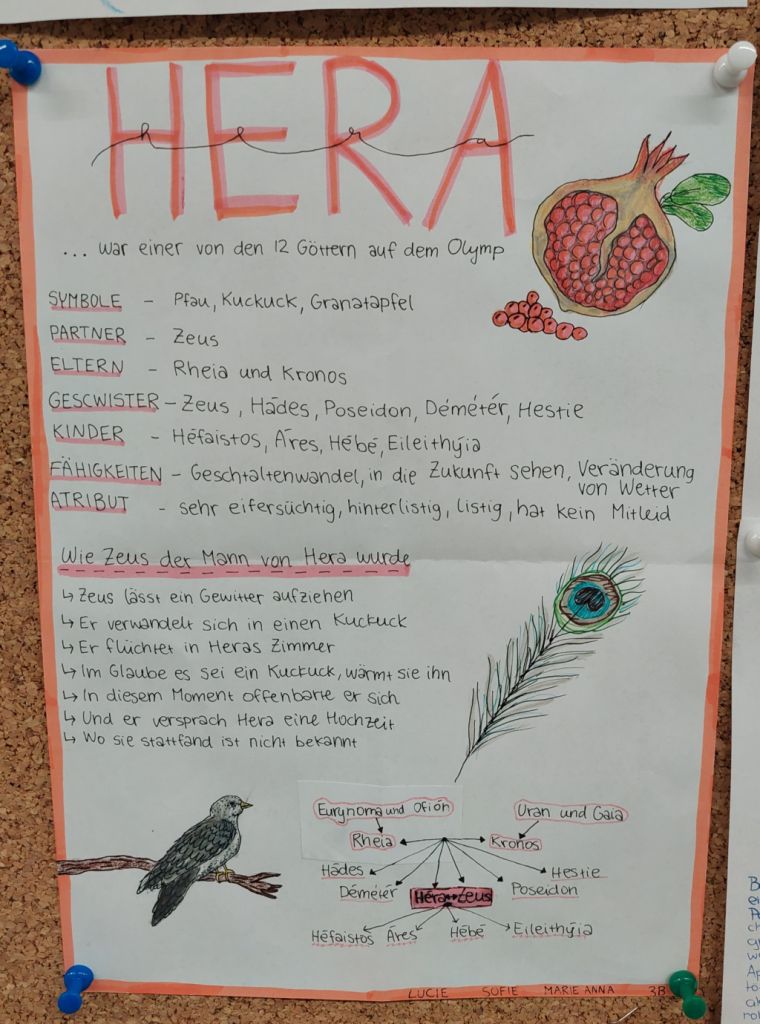 HERA
hera
... war einer von den 12 Göttern auf dem Olymp
SYMBOLE - Pfau, Kuckuck, Granatapfel
PARTNER - Zeus
ELTERN - Rheia und Kronos
GESCWISTER - Zeus, Hādes, Poseidon, Démétér, Hestie
KINDER - Héfaistos, Áres, Hébé, Eileithýia
FÄHIGKEITEN - Geschtaltenwandel, in die Zukunft sehen, Veränderung
von Wetter
ATRIBUT - sehr eifersüchtig, hinterlistig, listig, hat kein Mitleid
Wie Zeus der Mann von Hera wurde
↳ Zeus lässt ein Gewitter aufziehen
↳ Er verwandelt sich in einen Kuckuck
↳ Er flüchtet in Heras Zimmer
↳ Im Glaube es sei ein Kuckuck, wärmt sie ihn
↳ In diesem Moment offenbarte er sich
↳ Und er versprach Hera eine Hochzeit
↳ Wo sie stattfand ist nicht bekannt
Eurynoma und Ofión Uran und Gaia
Rheia Kronos
Hādes Hestie
Démétér Héra↔Zeus Poseidon
Héfaistos Áres Hébé Eileithýia
LUCIE SOFIE MARIE ANNA 3B